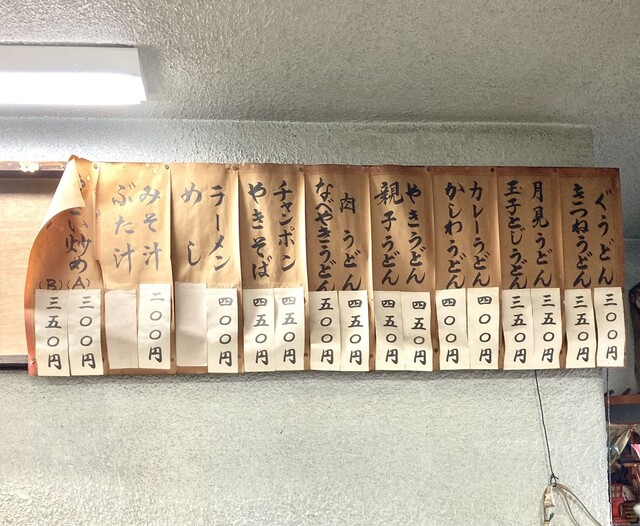 ぐうどん
三〇〇円
きつねうどん
三五〇円
月見うどん
三五〇円
玉子とじうどん
三五〇円
カレーうどん
四〇〇円
かしわうどん
四〇〇円
やきうどん
四五〇円
親子うどん
四五〇円
肉うどん
四五〇円
なべやきうどん
五〇〇円
チャンポン
四五〇円
やきそば
四五〇円
ラーメン
四〇〇円
めし
みそ汁
二〇〇円
ぶた汁
(A)
三〇〇円
い炒め
(B)
三五〇円